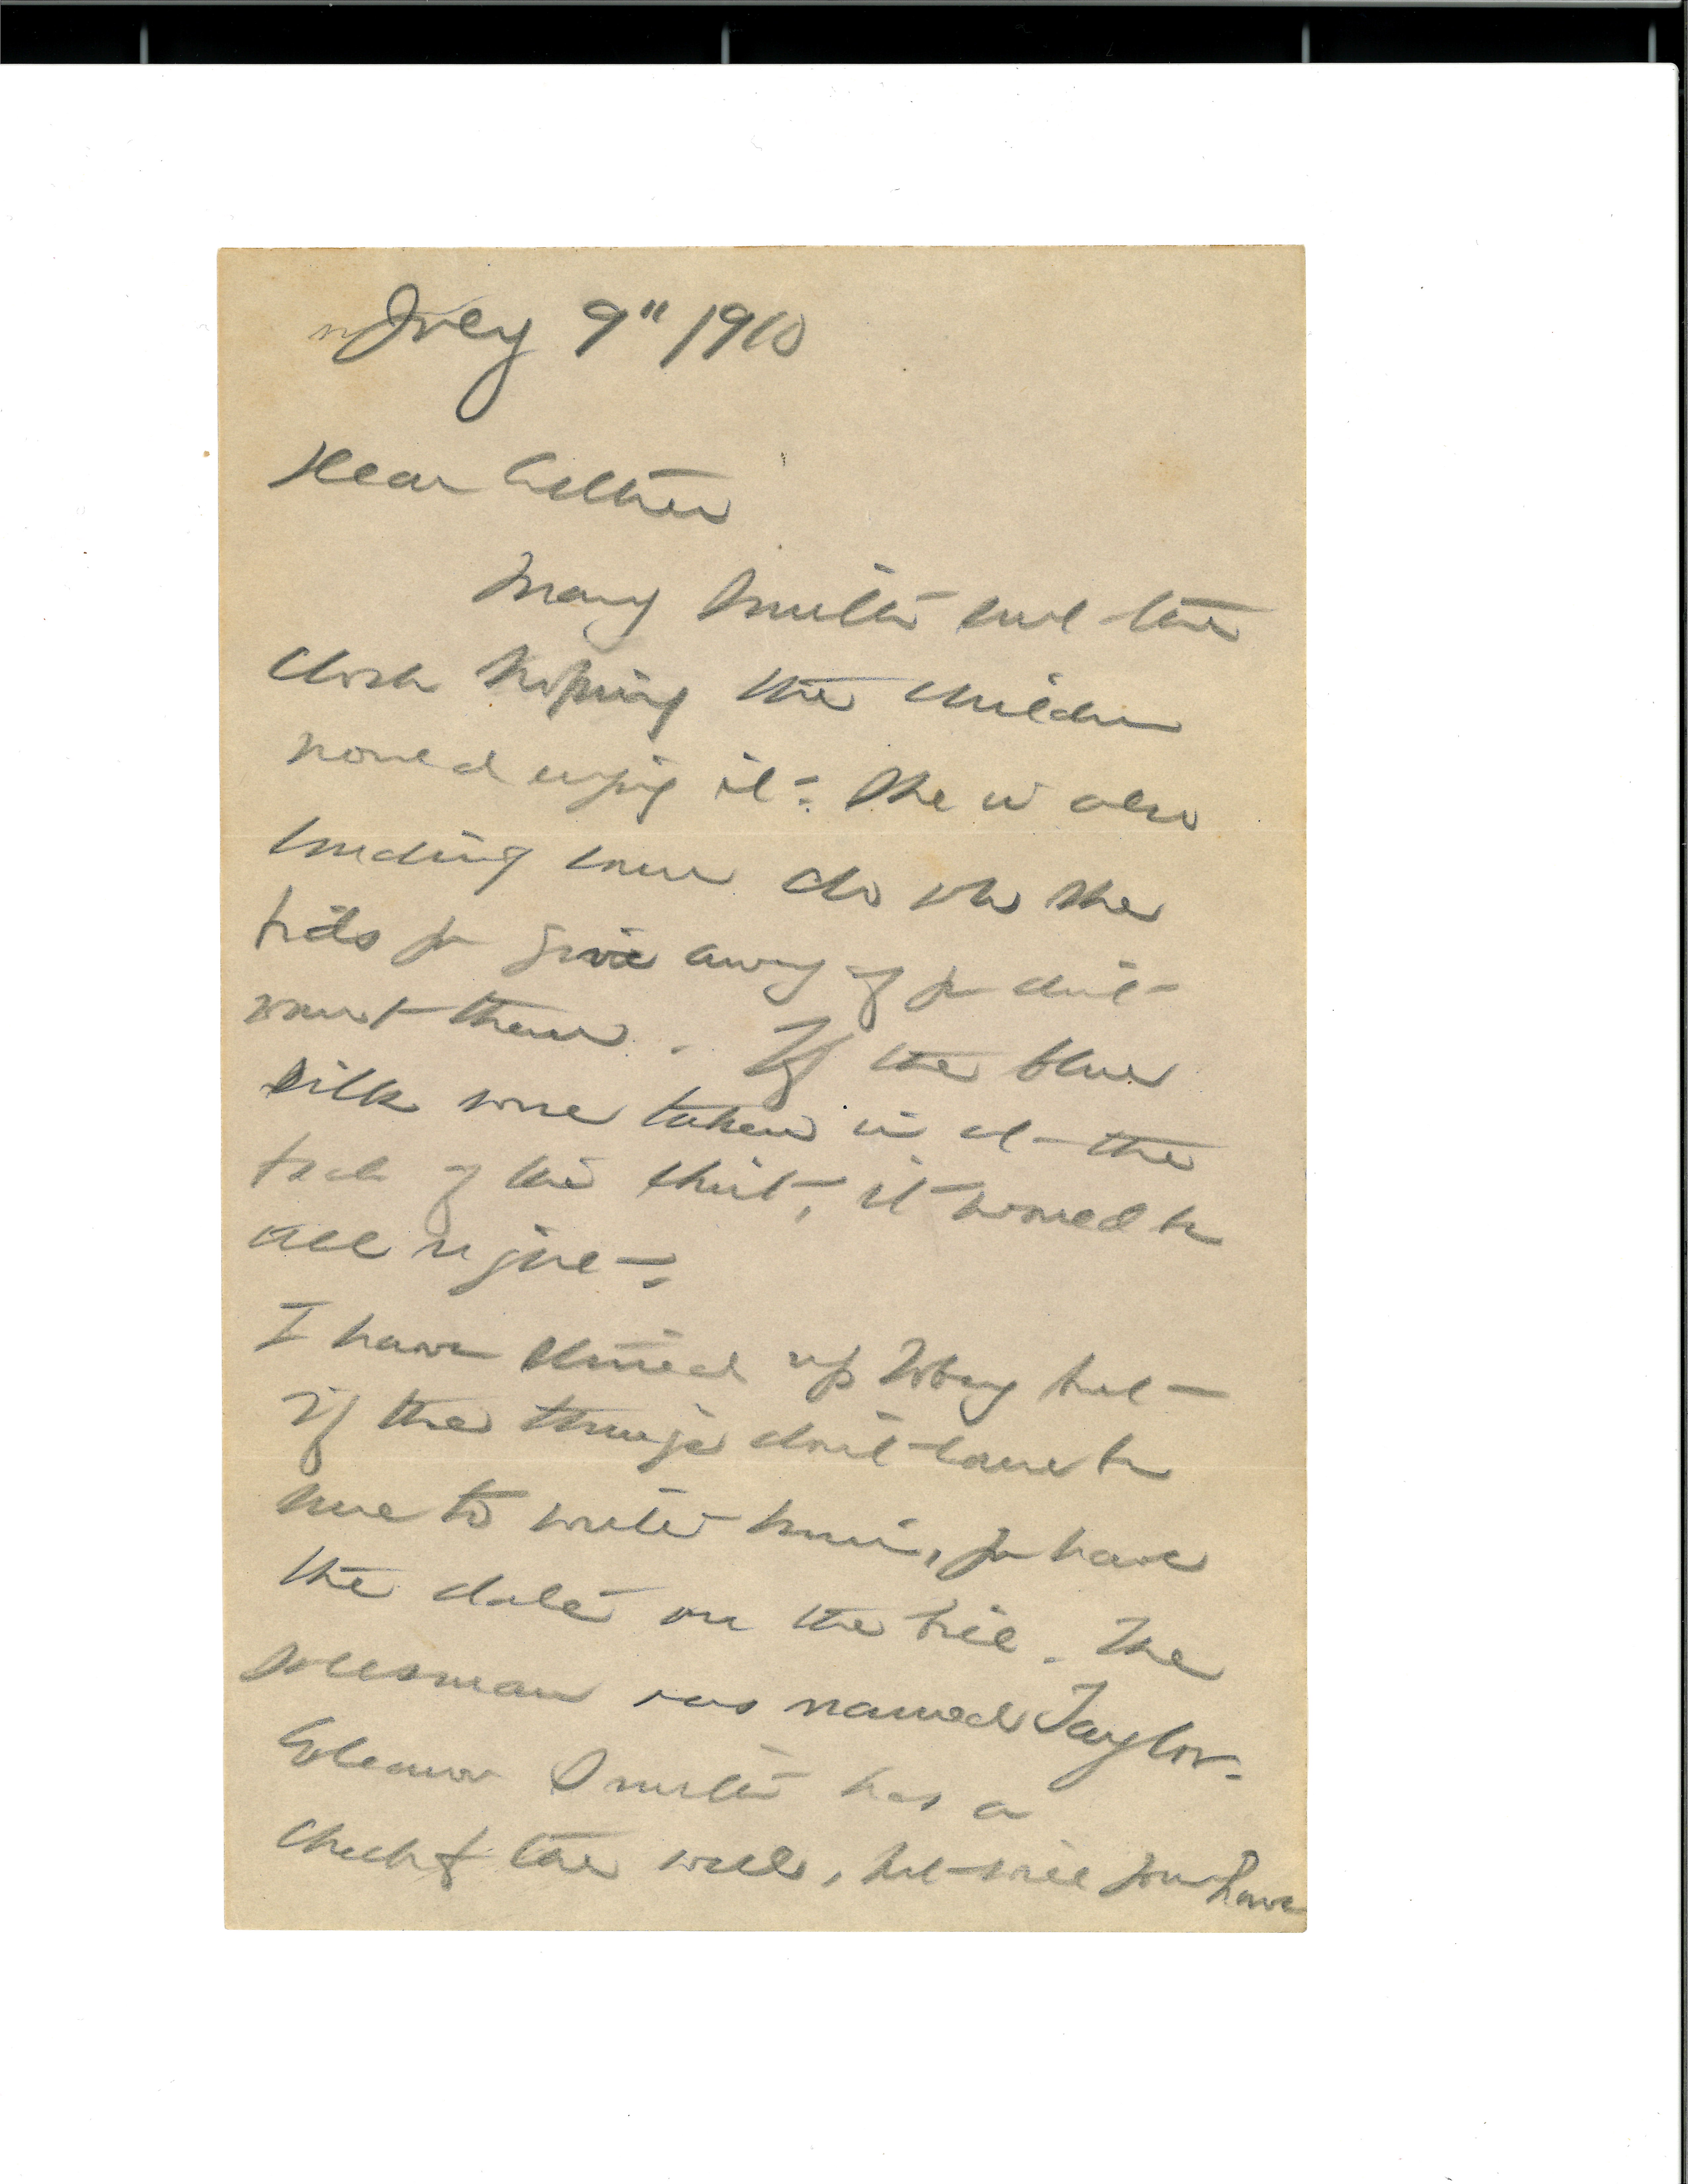 July 9" 1910
Dear Esther
Mary Smith sent the
clock hoping the children
would enjoy it. She is also
sending some clothes She
bids you give away if you don't
want them. If the blue
silk were taken in at the
back of the skirt, it would be
all right.
I have stirred up Tobey but
if the things don't come be
sure to write him, you have
the date on the bill. The
salesman was named Taylor.
Eleanor Smith has a
check for the well, but will you have